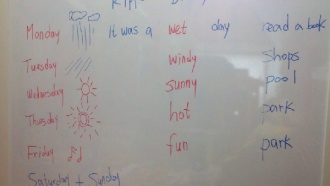 Monday It was a wet day read a book
Tuesday windy shops
Wednesday sunny pool
Thursday hot park
Friday fun park
Saturday + Sunday